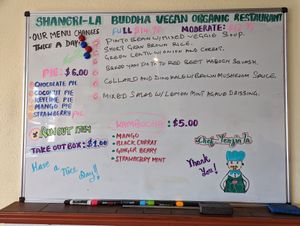 SHANGRI-LA BUDDHA VEGAN ORGANIC RESTAURANT
OUR MENU CHANGES
TWICE A DAY
FULL MODERATE:
PINTO BEAN w/MIXED VEGGIE SOUP.
SHORT GRAIN BROWN RICE.
GREEN LENTIL w/ONION AND CHERRY.
BRAISED YAM DATE RED BEET KABOCHA SQUASH.
COLLARD AND DINO KALE w/BROWN MUSHROOM SAUCE.
MIXED SALAD w/LEMON MINT AGAVE DRESSING.
PIE $6.00
CHOCOLATE PIE
COCONUT PIE
KEYLIME PIE
MANGO PIE
STRAWBERRY PIE
RUN OUT ITEM
TAKE OUT BOX: $1.00
Have a Nice Day!
KOMBUCHA: $5.00
MANGO
BLACK CURRAT
GINGER BERRY
STRAWBERRY MINT
Thank
You!
Chef